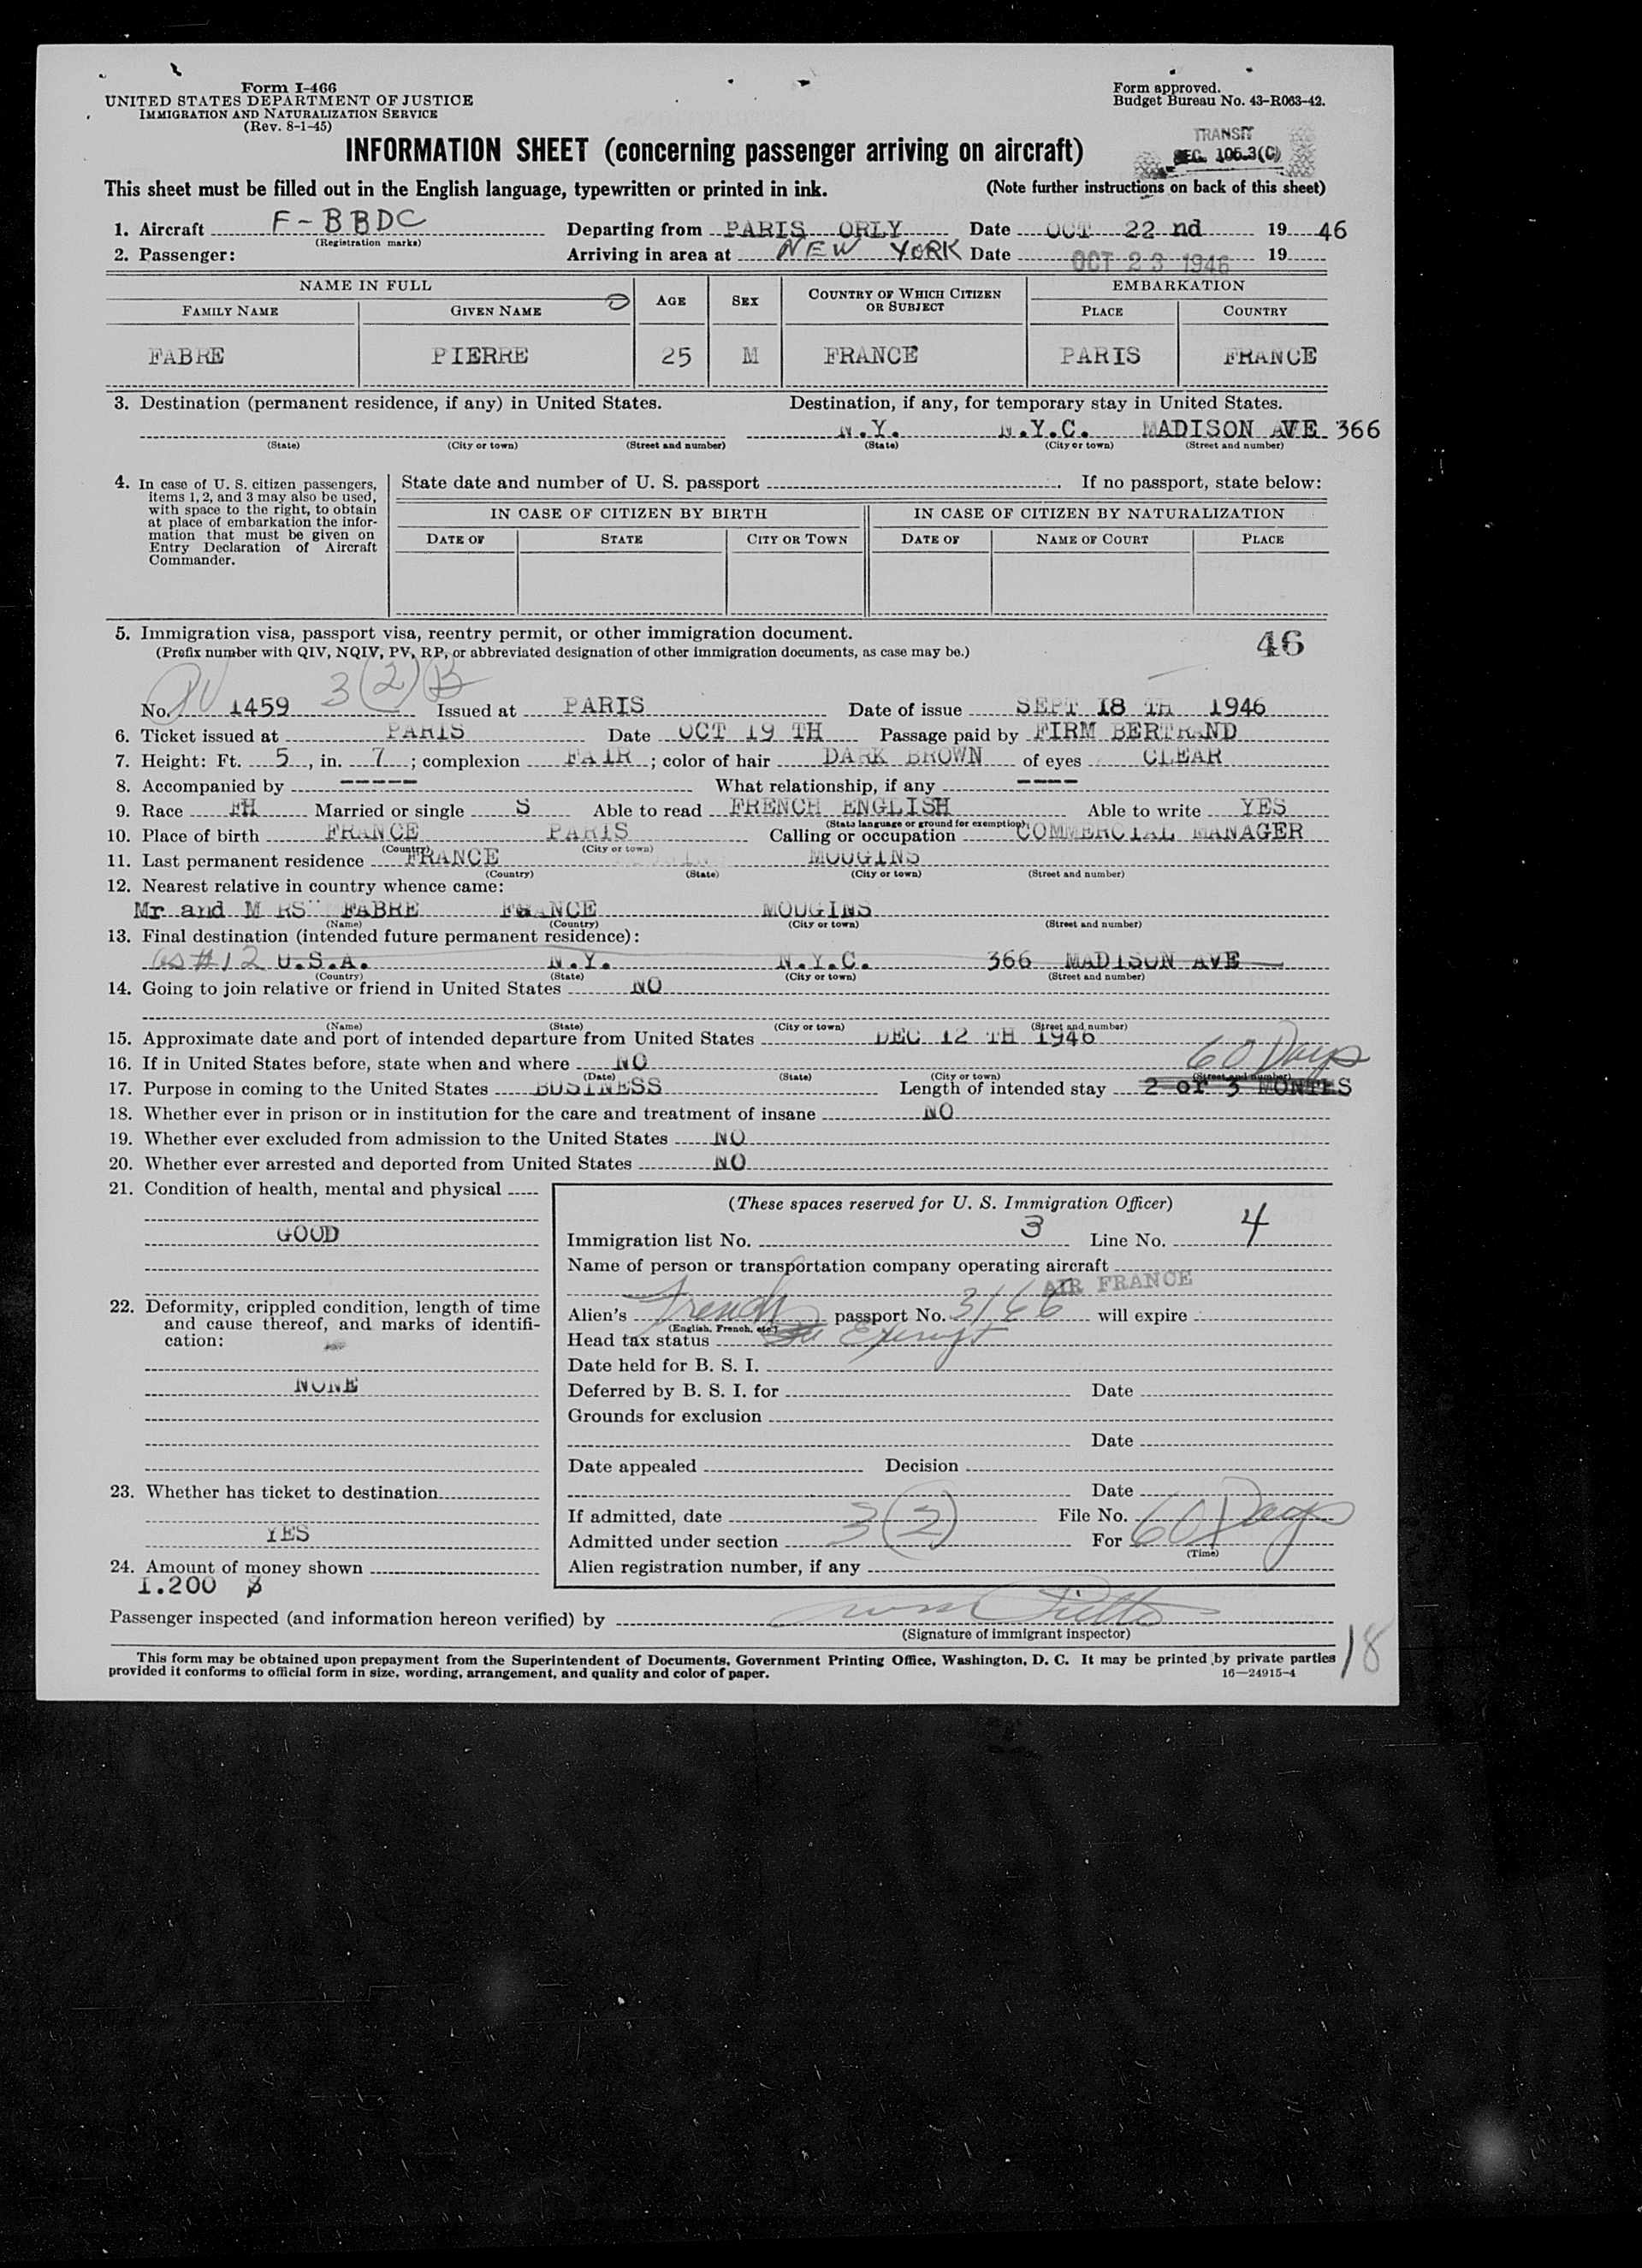 Form I-466
UNITED STATES DEPARTMENT OF JUSTICE
IMMIGRATION AND NATURALIZATION SERVICE
(Rev. 8-1-45)
Form approved.
Budget Bureau No. 43-R063-42.
TRANSIT
SEC. 105.3(C)
INFORMATION SHEET (concerning passenger arriving on aircraft)
This sheet must be filled out in the English language, typewritten or printed in ink. (Note further instructions on back of this sheet)
1. Aircraft F-BBDC Departing from PARIS ORLY Date OCT 22 nd 19 46
(Registration marks)
2. Passenger: Arriving in area at NEW YORK Date OCT 23 1946 19
NAME IN FULL AGE SEX COUNTRY OF WHICH CITIZEN OR SUBJECT EMBARKATION
FAMILY NAME GIVEN NAME PLACE COUNTRY
FABRE PIERRE 25 M FRANCE PARIS FRANCE
3. Destination (permanent residence, if any) in United States. Destination, if any, for temporary stay in United States.
N.Y. N.Y.C. MADISON AVE 366
(State) (City or town) (Street and number) (State) (City or town) (Street and number)
4. In case of U. S. citizen passengers, items 1, 2, and 3 may also be used, with space to the right, to obtain at place of embarkation the information that must be given on Entry Declaration of Aircraft Commander.
State date and number of U. S. passport . If no passport, state below:
IN CASE OF CITIZEN BY BIRTH IN CASE OF CITIZEN BY NATURALIZATION
DATE OF STATE CITY OR TOWN DATE OF NAME OF COURT PLACE
5. Immigration visa, passport visa, reentry permit, or other immigration document. 46
(Prefix number with QIV, NQIV, PV, RP, or abbreviated designation of other immigration documents, as case may be.)
No. PV 1459 3(2)B Issued at PARIS Date of issue SEPT 18 TH 1946
6. Ticket issued at PARIS Date OCT 19 TH Passage paid by FIRM BERTRAND
7. Height: Ft. 5, in. 7; complexion FAIR; color of hair DARK BROWN of eyes CLEAR
8. Accompanied by ----- What relationship, if any ----
9. Race FH Married or single S Able to read FRENCH ENGLISH Able to write YES
(State language or ground for exemption)
10. Place of birth FRANCE PARIS Calling or occupation COMMERCIAL MANAGER
(Country) (City or town)
11. Last permanent residence FRANCE MOUGINS
(Country) (State) (City or town) (Street and number)
12. Nearest relative in country whence came:
Mr and M RS FABRE FRANCE MOUGINS
(Name) (Country) (City or town) (Street and number)
13. Final destination (intended future permanent residence):
as #12 U.S.A. N.Y. N.Y.C. 366 MADISON AVE
(Country) (State) (City or town) (Street and number)
14. Going to join relative or friend in United States NO
(Name) (State) (City or town) (Street and number)
15. Approximate date and port of intended departure from United States DEC 12 TH 1946
16. If in United States before, state when and where NO 60 Days
(Date) (State) (City or town) (Street and number)
17. Purpose in coming to the United States BUSINESS Length of intended stay 2 or 3 MONTHS
18. Whether ever in prison or in institution for the care and treatment of insane NO
19. Whether ever excluded from admission to the United States NO
20. Whether ever arrested and deported from United States NO
21. Condition of health, mental and physical
GOOD
22. Deformity, crippled condition, length of time and cause thereof, and marks of identification:
NONE
23. Whether has ticket to destination
YES
24. Amount of money shown
1.200 $
(These spaces reserved for U. S. Immigration Officer)
Immigration list No. 3 Line No. 4
Name of person or transportation company operating aircraft
AIR FRANCE
Alien's French passport No. 3166 will expire
(English, French, etc.)
Head tax status Exempt
Date held for B. S. I.
Deferred by B. S. I. for Date
Grounds for exclusion
Date
Date appealed Decision
Date
If admitted, date File No.
Admitted under section 3(2) For 60 Days
(Time)
Alien registration number, if any
Passenger inspected (and information hereon verified) by
(Signature of immigrant inspector)
18
This form may be obtained upon prepayment from the Superintendent of Documents, Government Printing Office, Washington, D. C. It may be printed by private parties
provided it conforms to official form in size, wording, arrangement, and quality and color of paper. 16—24915-4